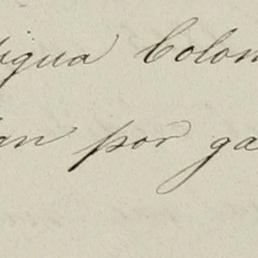 tigua Colom
an por ga